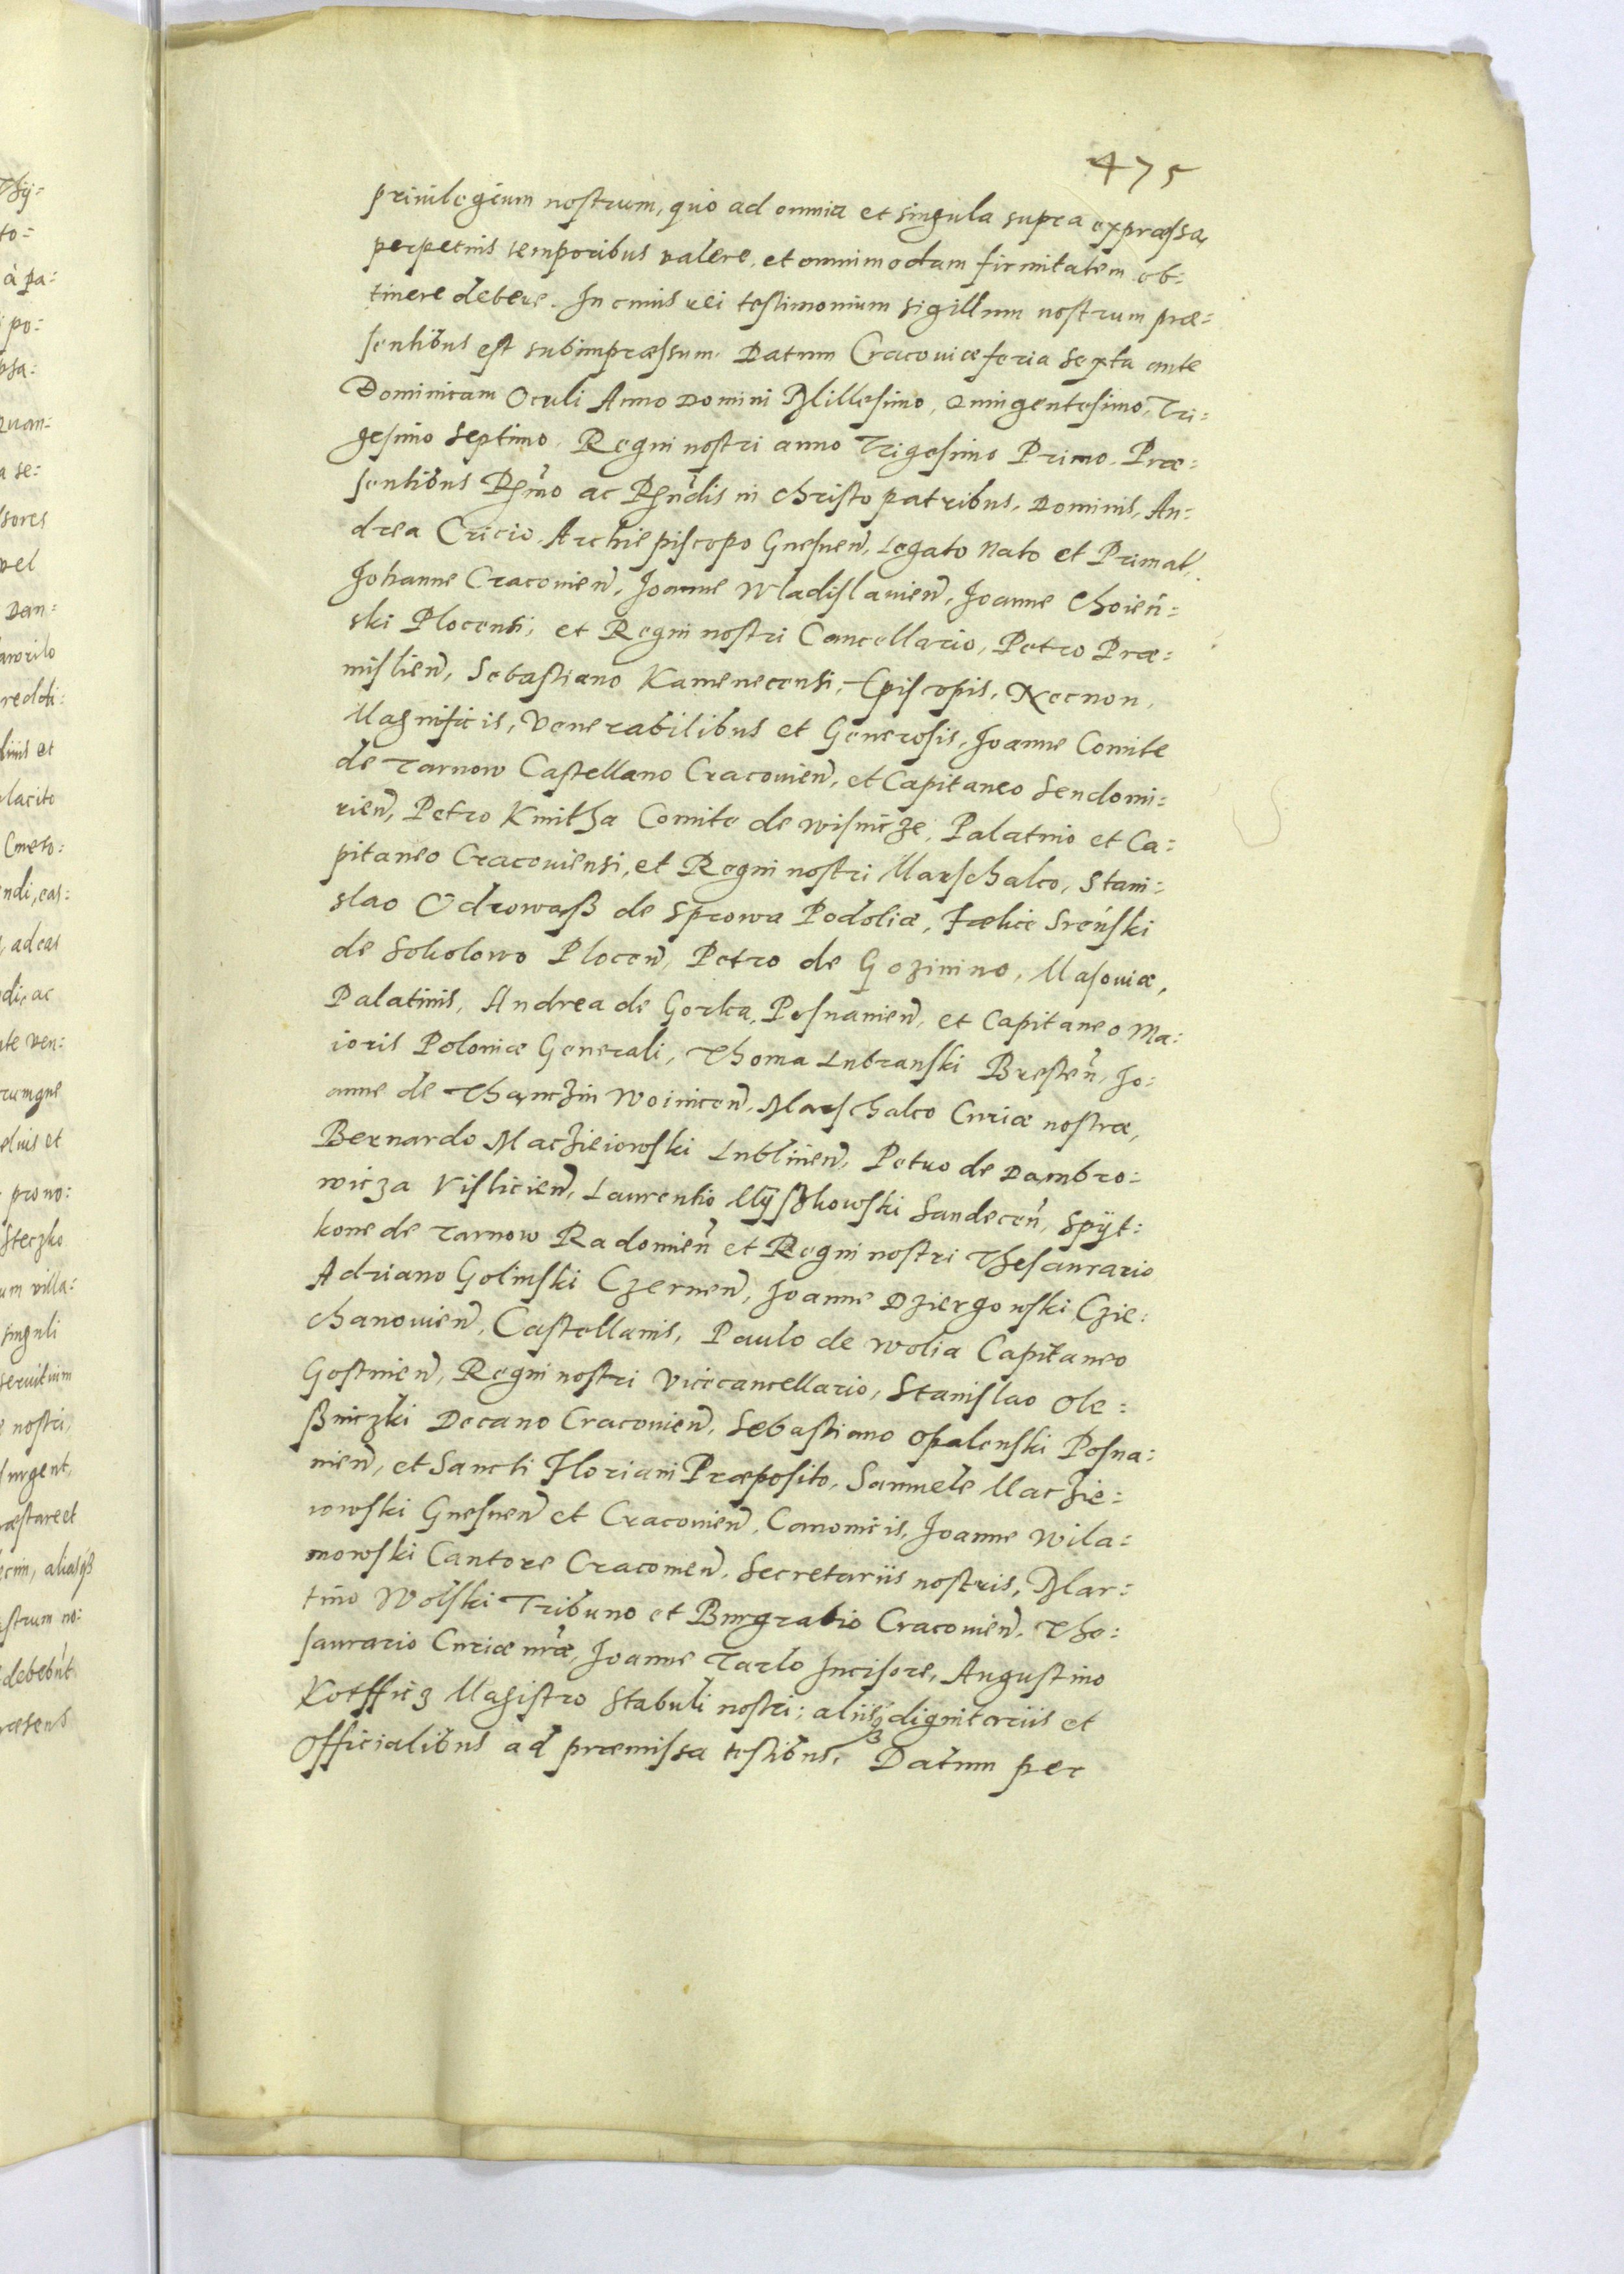 475
privilegium nostrum, quo ad omnia et singula supra expræssa,
perpetuis temporibus valere, et omnimodam firmitatem ob=
tinere debere. In cuius rei testimonium sigillum nostrum præ=
sentibus est subimpræssum. Datum Cracoviæ feria sexta ante
Dominicam Oculi Anno Domini Millesimo, Quingentesimo, Tri=
gesimo Septimo, Regni nostri anno Trigesimo Primo. Præ=
sentibus Rsmo ac Rndis in Christo patribus, Dominis, An=
drea Cricio, Archiepiscopo Gnesnen, Legato Nato et Primat,
Johanne Cracovien, Joanne Wladislavien, Joanne Choień=
ski Plocensi, et Regni nostri Cancellario, Petro Præ=
mislien, Sebastiano Kamenecensi, Episcopis, Necnon,
Magnificis, Venerabilibus et Generosis, Joanne Comite
de Tarnow Castellano Cracovien, et Capitaneo Sendomi=
rien, Petro Kmitha Comite de Wisnicze, Palatino et Ca=
pitaneo Cracoviensi, et Regni nostri Marschalco, Stani=
slao Odrowaß de Sprowa Podoliæ, Fœlice Sreński
de Sokolowo Plocen, Petro de Gozinino, Masoviæ,
Palatinis, Andrea de Gorka, Posnanien, et Capitaneo Ma=
ioris Poloniæ Generali, Thoma Lubranski Bresten, Jo=
anne de Thanczin Woinicen, Marschalco Curiæ nostræ,
Bernardo Macziejowski Lublinen, Petro de Dambro=
wicza Vislicien, Laurentio Myßkowski Sandecen, Spyt=
kone de Tarnow Radomien et Regni nostri Thesaurario
Adriano Golinski Czernen, Joanne Dziergowski Czie=
chanovien, Castellanis, Paulo de Wolia Capitaneo
Gostinien, Regni nostri Vicecancellario, Stanislao Ole=
ßniczki Decano Cracovien, Sebastiano Opalenski Posna=
nien, et Sancti Floriani Præposito, Samuele Maczie=
iowski Gnesnen et Cracovien, Canonicis, Joanne Wila=
mowski Cantore Cracovien, Secretariis nostris, Mar=
tino Wolski Tribuno et Burgrabio Cracovien, The=
saurario Curiæ nræ, Joanne Tarlo Incisore, Augustino
Kotfficz Magistro Stabuli nostri; aliisq dignitariis et
Officialibus ad præmissa testibus, Datum per